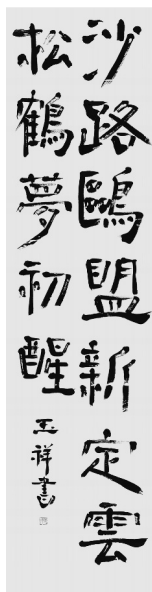 沙路鷗盟新定雲
松鶴夢初醒
玉祥書